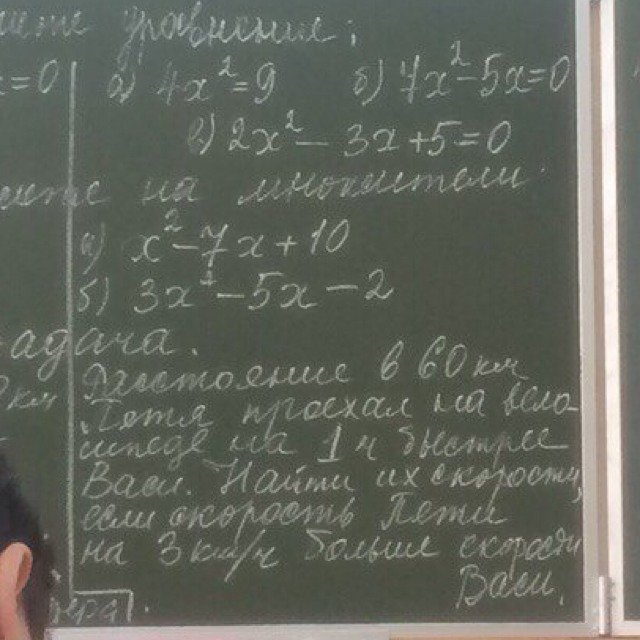 уравнения:
=0 а) 4x²=9 б) 7x²-5x=0
в) 2x² - 3x+5=0
на множители:
а) x²-7x+10
б) 3x²-5x-2
адача.
Расстояние в 60 км
км Петя проехал на вело-
сипеде на 1 ч быстрее
Васи. Найти их скорости,
если скорость Пети
на 3 км/ч больше скорости
Васи.